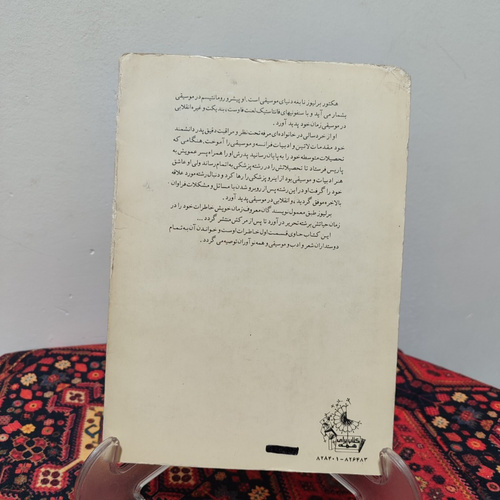 هکتور برلیوز نابغه دنیای موسیقی است. او پیشرو رومانتیسم در موسیقی
بشمار می آید و با سمفونیهای فانتاستیک لعنت فاوست بندیکت و غیره انقلابی
در موسیقی زمان خود پدید آورد.
او از خردسالی در خانواده‌ای مرفه تحت نظر و مراقبت دقیق پدر دانشمند
خود مقدمات لاتین و ادبیات فرانسه و موسیقی را آموخت. هنگامی که
تحصیلات متوسطه خود را به پایان رسانید پدرش او را همراه پسر عمویش به
پاریس فرستاد تا تحصیلاتش را در رشته پزشکی به اتمام رساند ولی او عاشق
هنر ادبیات و موسیقی بود از اینرو پزشکی را رها کرد و دنبال رشته مورد علاقه
خود را گرفت او در این رشته پس از روبرو شدن با مسائل و مشکلات فراوان
بالاخره موفق گردید و انقلابی در موسیقی پدید آورد.
برلیوز طبق معمول نویسندگان معروف زمان خویش خاطرات خود را در
زمان حیاتش برشته تحریر در آورد تا پس از مرگش منتشر گردد ...
این کتاب حاوی قسمت اول خاطرات اوست و خواندن آن به تمام
دوستداران شعر و ادب و موسیقی و همه نوآوران توصیه می گردد.
کتاب برای همه
۸۲۸۴۰۱-۸۲۶۴۸۳